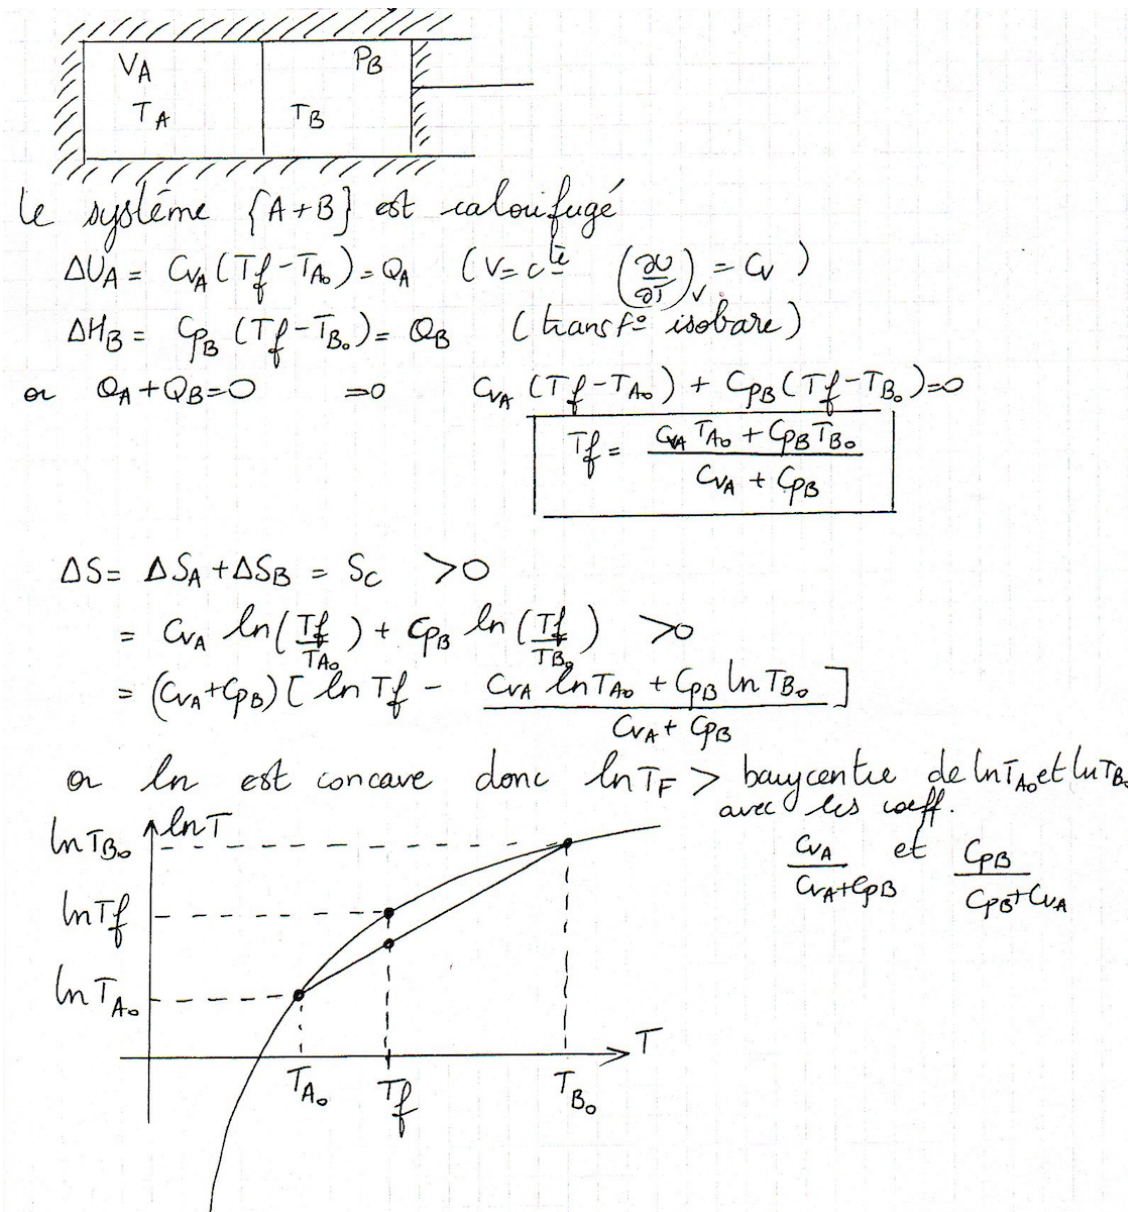 V_A P_B
T_A T_B
le système {A+B} est calorifugé
ΔU_A = C_{V_A} (T_f - T_{A_0}) = Q_A (V = c^{te} (∂U/∂T)_V = C_V)
ΔH_B = C_{P_B} (T_f - T_{B_0}) = Q_B (transf° isobare)
or Q_A + Q_B = 0 => C_{V_A} (T_f - T_{A_0}) + C_{P_B} (T_f - T_{B_0}) = 0
T_f = (C_{V_A} T_{A_0} + C_{P_B} T_{B_0}) / (C_{V_A} + C_{P_B})
ΔS = ΔS_A + ΔS_B = S_C > 0
= C_{V_A} ln(T_f/T_{A_0}) + C_{P_B} ln(T_f/T_{B_0}) > 0
= (C_{V_A} + C_{P_B}) [ln T_f - (C_{V_A} ln T_{A_0} + C_{P_B} ln T_{B_0}) / (C_{V_A} + C_{P_B})]
or ln est concave donc ln T_F > barycentre de ln T_{A_0} et ln T_{B_0}
avec les coeff.
C_{V_A}/(C_{V_A}+C_{P_B}) et C_{P_B}/(C_{P_B}+C_{V_A})
ln T
ln T_{B_0}
ln T_f
ln T_{A_0}
T
T_{A_0} T_f T_{B_0}